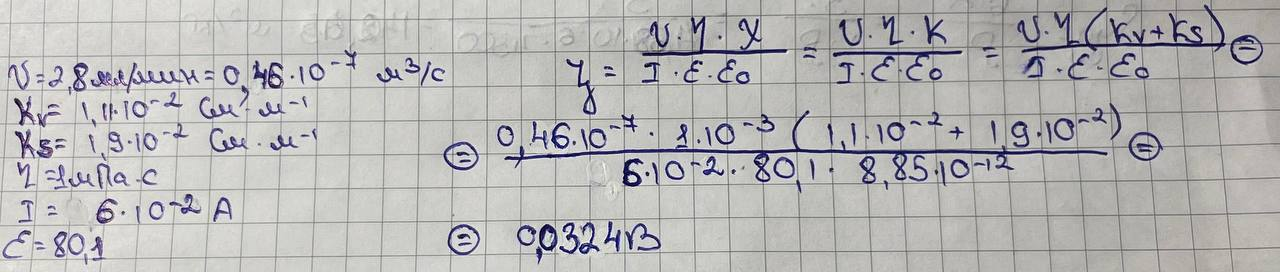 υ = 2,8 мл/мин = 0,46·10⁻⁷ м³/с
Kᵥ = 1,1·10⁻² См·м⁻¹
Ks = 1,9·10⁻² См·м⁻¹
η = 1мПа·с
I = 6·10⁻² А
ε = 80,1
ζ = υ·η·χ / I·ε·ε₀ = υ·η·K / I·ε·ε₀ = υ·η(Kᵥ+Ks) / I·ε·ε₀ =
= 0,46·10⁻⁷·1·10⁻³(1,1·10⁻² + 1,9·10⁻²) / 6·10⁻²·80,1·8,85·10⁻¹² =
= 0,0324В